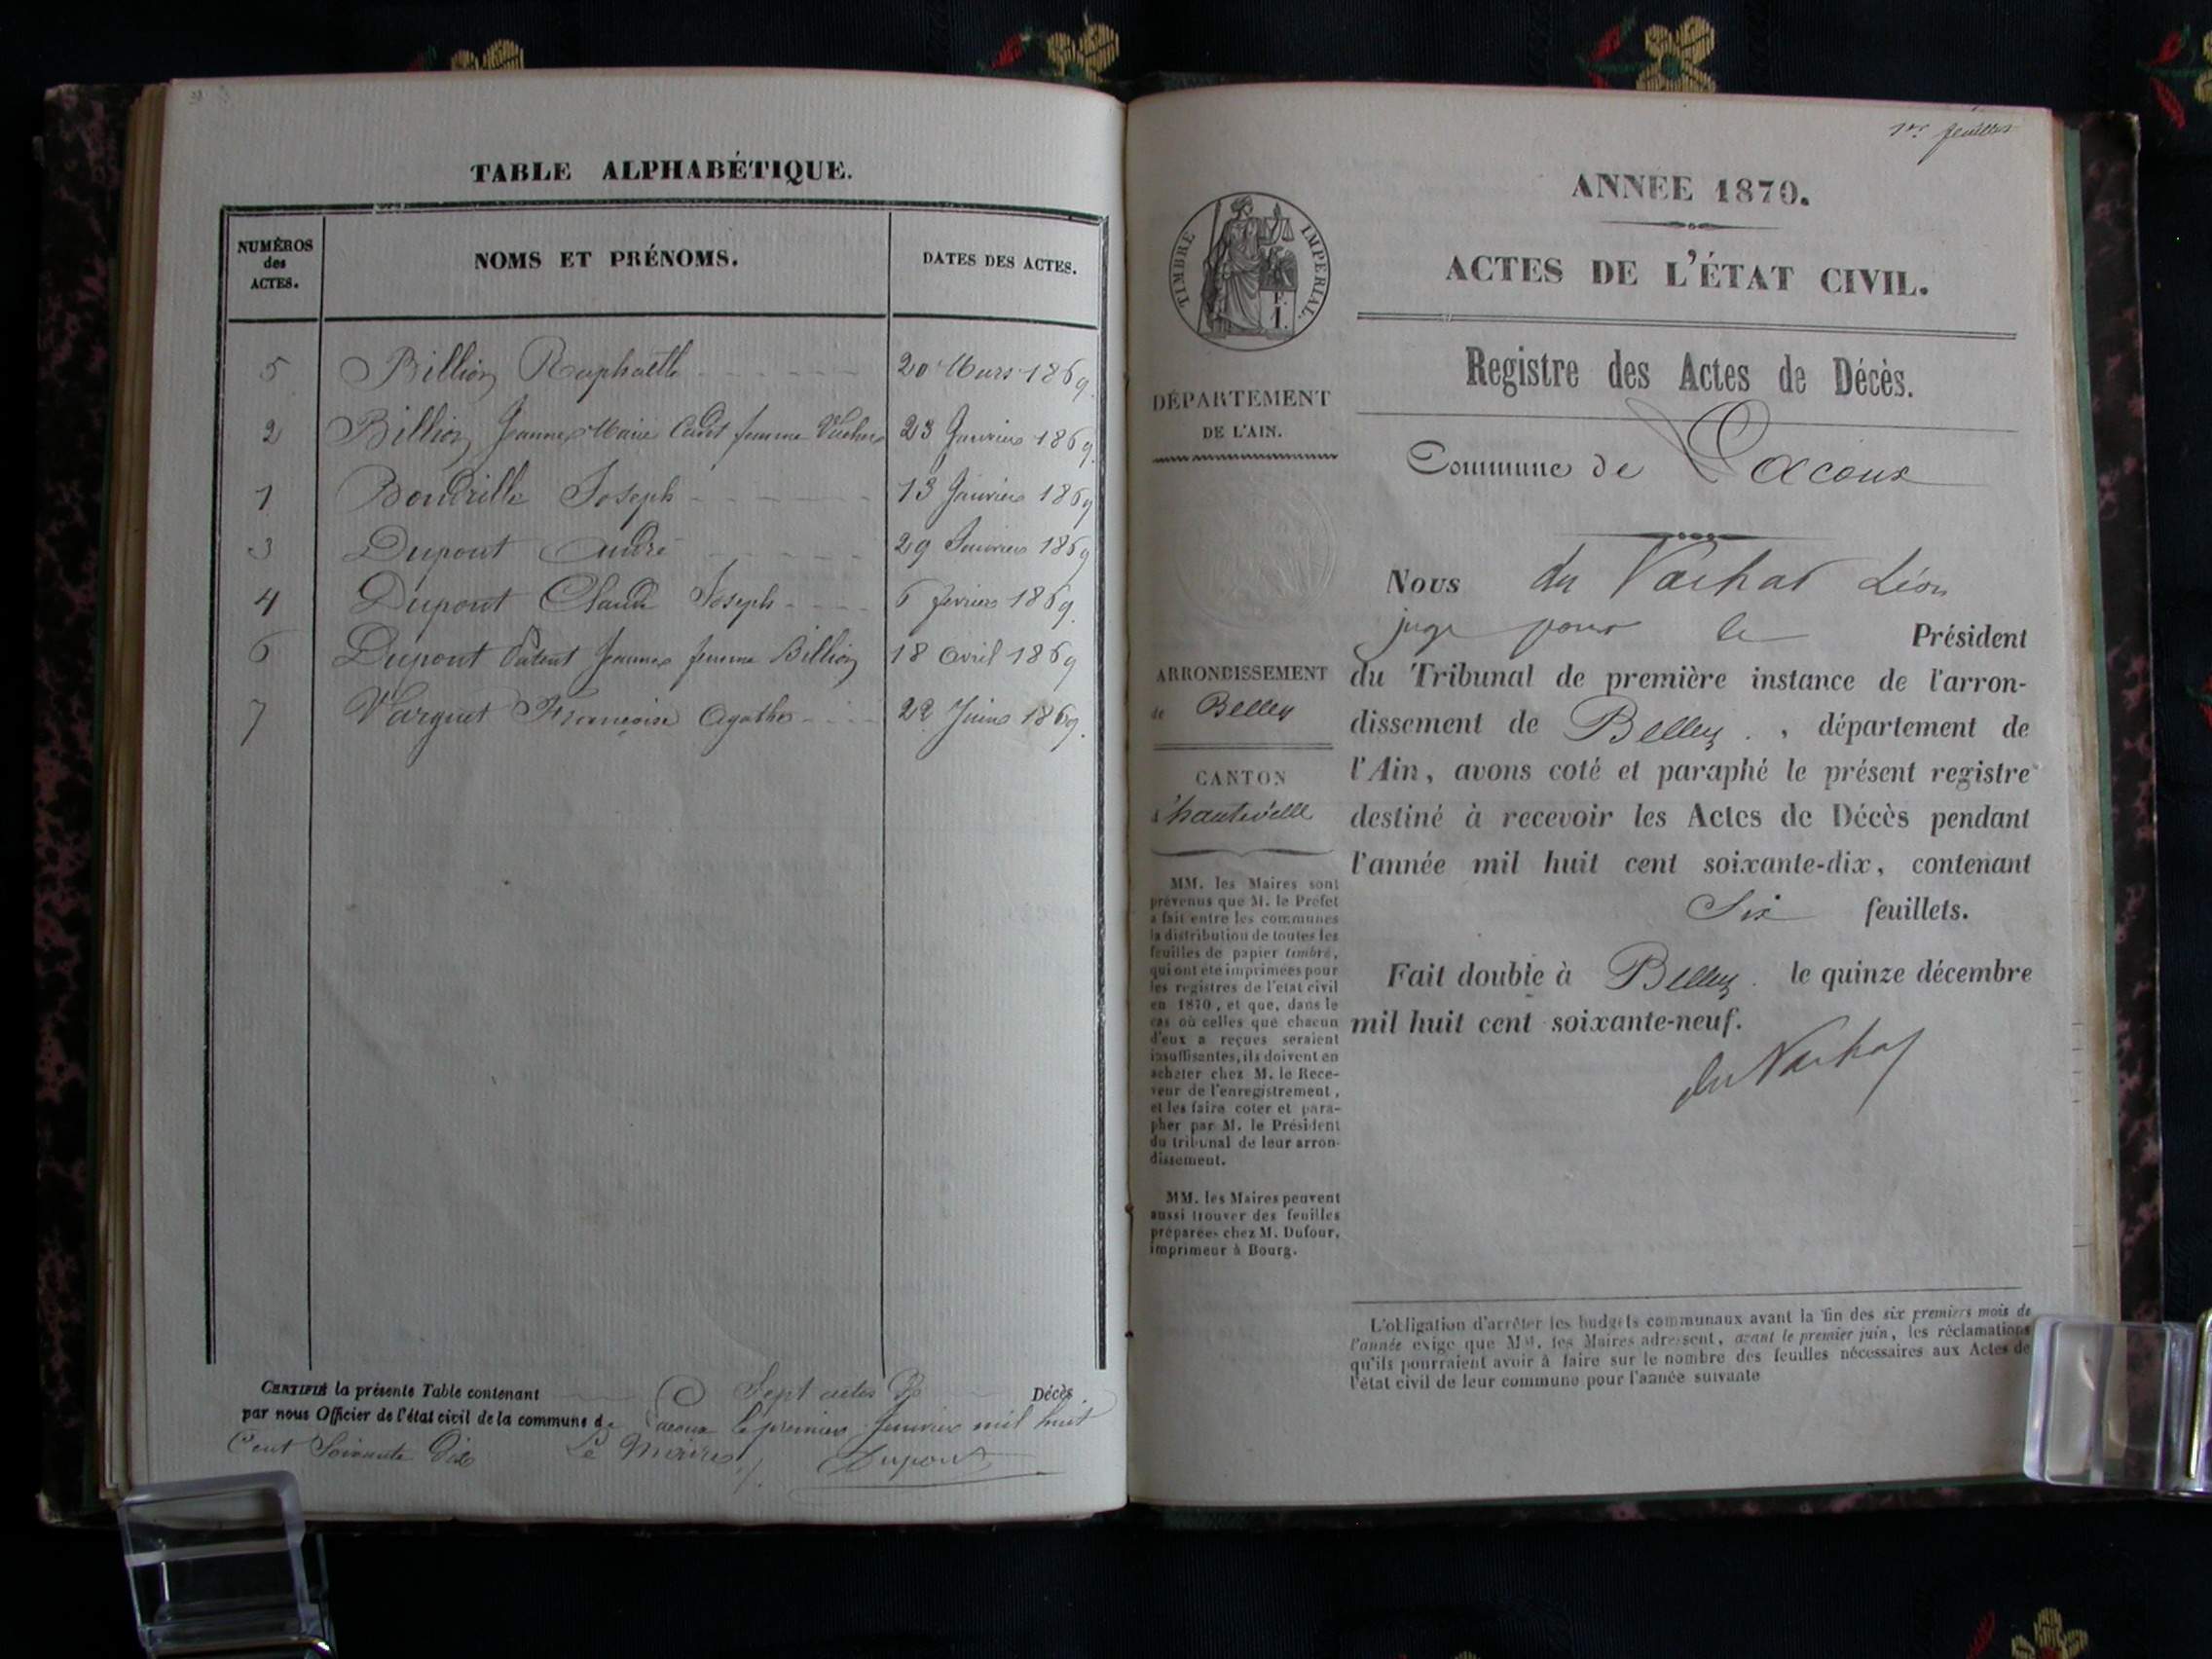 TABLE ALPHABÉTIQUE.
NUMÉROS des ACTES.
NOMS ET PRÉNOMS.
DATES DES ACTES.
5 Billion Raphaelle 20 Mars 1869.
2 Billion Jeanne Marie Cadet femme 23 Janvier 1869.
1 Bondrille Joseph 13 Janvier 1869
3 Dupont André 29 Janvier 1869
4 Dupont Claude Joseph 6 février 1869.
6 Dupont Jeanne femme Billion 18 avril 1869
7 Varguet Françoise Agathe 22 Juin 1869.
CERTIFIÉ la présente Table contenant Sept actes De Décès
par nous Officier de l'état civil de la commune de Lacoux le premier Janvier mil huit
Cent Soixante Dix Le Maire Dupont
1er feuillet
ANNÉE 1870.
ACTES DE L'ÉTAT CIVIL.
Registre des Actes de Décès.
Commune de Lacoux
TIMBRE IMPÉRIAL.
DÉPARTEMENT
DE L'AIN.
ARRONDISSEMENT
de Belley
CANTON
d'hauteville
MM. les Maires sont
prévenus que M. le Préfet
a fait entre les communes
la distribution de toutes les
feuilles de papier timbré,
qui ont été imprimées pour
les registres de l'état civil
en 1870, et que, dans le
cas où celles que chacun
d'eux a reçues seraient
insuffisantes, ils doivent en
acheter chez M. le Rece-
veur de l'enregistrement,
et les faire coter et para-
pher par M. le Président
du tribunal de leur arron-
dissement.
MM. les Maires peuvent
aussi trouver des feuilles
préparées chez M. Dufour,
imprimeur à Bourg.
Nous du Vachat Léon
juge pour le Président
du Tribunal de première instance de l'arron-
dissement de Belley. , département de
l'Ain, avons coté et paraphé le présent registre
destiné à recevoir les Actes de Décès pendant
l'année mil huit cent soixante-dix, contenant
Six feuillets.
Fait double à Belley. le quinze décembre
mil huit cent soixante-neuf.
du Vachat
L'obligation d'arrêter les budgets communaux avant la fin des six premiers mois de
l'année exige que MM. les Maires adressent, avant le premier juin, les réclamations
qu'ils pourraient avoir à faire sur le nombre des feuilles nécessaires aux Actes de
l'état civil de leur commune pour l'année suivante